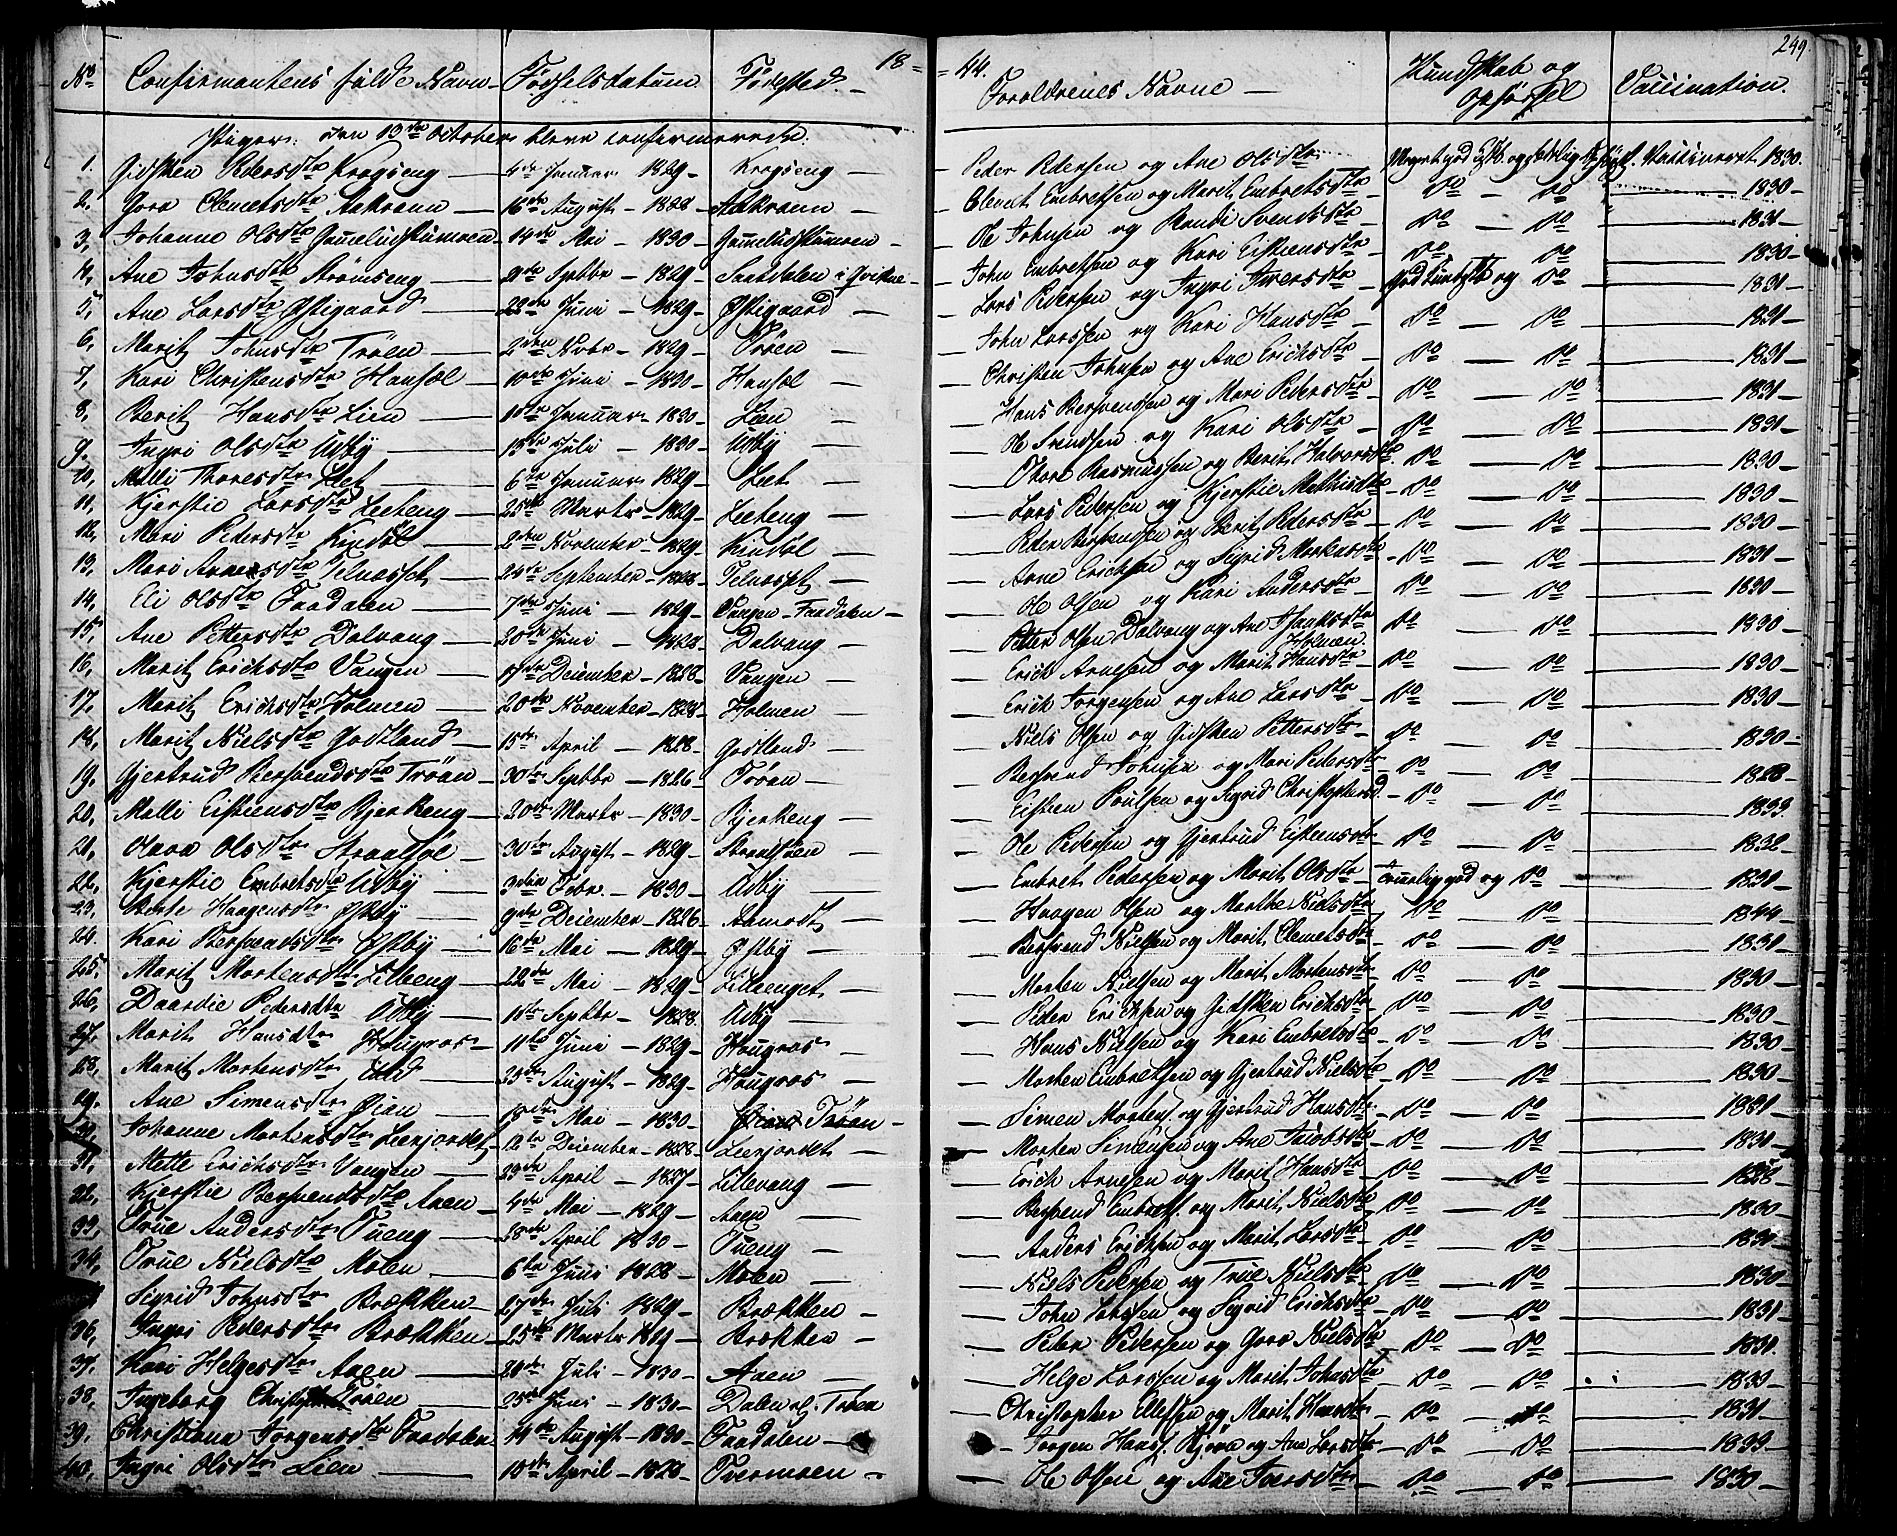 18 = = 44. 249
No Confirmantens fulde Navn Fødselsdatum. Fødested. Forældrenes Navne Kundskab og Opførsel Vaccination.
Piger: den 13de October bleve confirmerede:
1. Gidsken Pedersdtr Krogseng 4de Januar 1829 Krogseng Peder Pedersen og Ane Olsdtr Meget god og Vaccineret 1830
2, Goro Clemetsdtr Aakrann 16de August 1828 Aakrann Clemet Embretsen og Marit Embretsdtr Do Do 1830
3, Johanne Olsdtr 14de Mai 1830 Ole Johnsen og Randi Svendsdtr Do Do 1831
4, Ane Johnsdtr Strømseng Septbr 1829 i Qvikne John Embretsen og Kari Eistensdtr Do Do 1830
5, Ane Larsdtr Østigaard 22de Juni 1829 Østigaard Lars Pedersen og Ingri Iversdtr god Kundskb og Do 1831
6, Marit Johnsdtr Trøen 2den Novbr 1829 Trøen John Larssen og Kari Hansdtr Do Do 1831
7, Kari Christensdtr Hansæl 10de Juni 1830 Hansæl Christen Johnsen og Ane Erichsdtr Do Do 1831
8, Berit Hansdtr Lien Januar 1830 Lien Hans Bersvendsen og Mari Pedersdtr Do Do 1831
9. Ingri Olsdtr Udby 15de Juli 1830 Udby Ole Svendsen og Kari Olsdtr Do Do 1831
10, Malli Thoresdtr Leet 6te Januar 1829 Leet Thore Rasmussen og Berit Halvorsdtr Do Do 1830
11, Kjerstie Larsdtr Leeteng 25de Marts 1829 Leeteng Lars Pedersen og Kjerstie Mathisdtr Do Do 1830
12, Mari Pedersdtr Kindøl 2den November 1829 Kindøl Peder Bersvendsen og Berit Pedersdtr Do Do 1830
13, Mari Arnesdtr Telnæsset 24de September 1828 Telnæsset Arne Erichsen og Sigrid Do Do 1831
14, Eli Olsdtr Faadalen 7de Juni 1829 Vangen Faadalen Ole Olsen og Kari Andersdtr Do Do 1830
15, Ane Pettersdtr Dalvang 20de Juni 1828 Dalvang Petter Olsen Dalvang og Ane Holmen Do Do 1830
16, Marit Erichsdtr Vangen 17de December 1828 Vangen Erich Arnesen og Marit Hansdtr Do Do 1830
17, Marit Erichsdtr Holmen 20de November 1828 Holmen Erich Jørgensen og Ane Larsdtr Do Do 1830
18, Marit Nielsdtr Godtland 15de April 1828 Godtland Niels Olsen og Gidsken Pettersdtr Do Do 1830
19. Gjertrud Bersvendsdtr Trøan 30te Septbr 1826 Trøan Bersvend Johnsen og Mari Pedersdtr Do Do 1828
20, Malli Eistensdtr Bjerkeng 20de Marts 1830 Bjerkeng Eisten Poulsen og Sigrid Christophersd Do Do 1833
21, Olava Olsdtr 30te August 1829 Ole Pedersen og Gjertrud Eistensdtr Do Do 1832
22, Kjerstie Embretsdtr Udby 3die Febr 1830 Udby Embret Pedersen og Marit Olsdtr Temmelig god og Do 1831
23, Berte Haagensdtr Østby 9de December 1826 Aamodt Haagen Olsen og Marthe Nielsdtr Do Do 1844
24. Kari Bersvendsdtr Østby 16de Mai 1829 Østby Bersvend Nielsen og Marit Clemetsdtr Do Do 1831
25, Marit Mortensdtr Lilleeng 22de Mai 1829 Lilleenget Morten Nielsen og Marit Mortensdtr Do Do 1830
26, Daardie Pedersdtr Udby Septbr 1828 Udby Peder Erichsen og Gidsken Erichsdtr Do Do 1830
27, Marit Hansdtr Hougros 11te Juni 1829 Hougros Hans Nielsen og Kari Embretsdtr Do Do 1830
28, Marit Mortensdtr 25de August 1829 Hougros Morten Embretsen og Gjertrud Nielsdtr Do Do 1830
29, Ane Simensdtr Øian Mai 1830 Øian Trøan Simen Mortens. og Gjertrud Hansdtr Do Do 1831
30, Johanne Mortensdtr Leenjordet 12te December 1828 Leenjordet Morten Simensen og Ane Jacobsdtr Do Do 1831
31, Mette Erichsdtr Vangen 29de April 1827 Lillevang Erich Arnesen og Marit Hansdtr Do Do 1828
32, Kjerstie Bersvendsdtr Aaen 4de Mai 1829 Aaen Bersvend Embrets. og Marit Nielsdtr Do Do 1830
33, True Andersdtr Tueng 28de April 1830 Tueng Anders Erichsen og Marit Larsdtr Do Do 1831
34, True Nielsdtr Moen 6te Juni 1828 Moen Niels Pedersen og True Nielsdtr Do Do 1830
Sigrid Johnsdtr Brækken 27de Juli 1829 Brækken John Larssen og Sigrid Erichsdtr Do Do 1831
36, Ingri Pedersdtr Brækken 25de Marts 1829 Brækken Peder Pedersen og Goro Nielsdtr Do Do 1831
37, Kari Helgesdtr Aaen 20de Juli 1830 Aaen Helge Larssen og Marit Johnsdtr Do Do 1833
38, Ingeborg Trøen 25de Juni 1830 Dalen Christopher Ellefsen og Marit Hansdtr Do Do 1831
39, Christiana Jørgensdtr Faadalen 14de August 1830 Faadalen Jørgen Hans. og Ane Larsdtr Do Do 1833
40, Ingri Olsdtr Lien 10de April 1829 Tvermoen Ole Olsen og Ane Iversdtr Do Do 1830